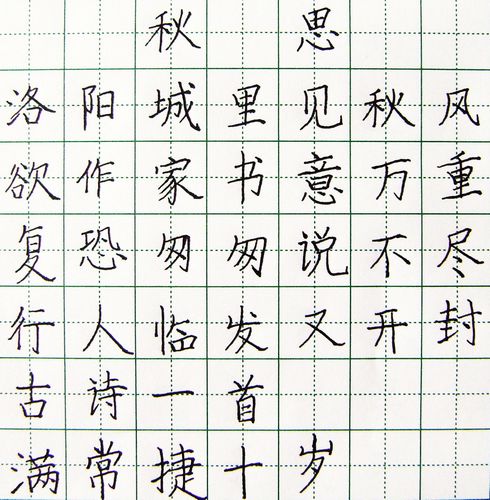 秋思
洛阳城里见秋风
欲作家书意万重
复恐匆匆说不尽
行人临发又开封
古诗一首
满常捷十岁